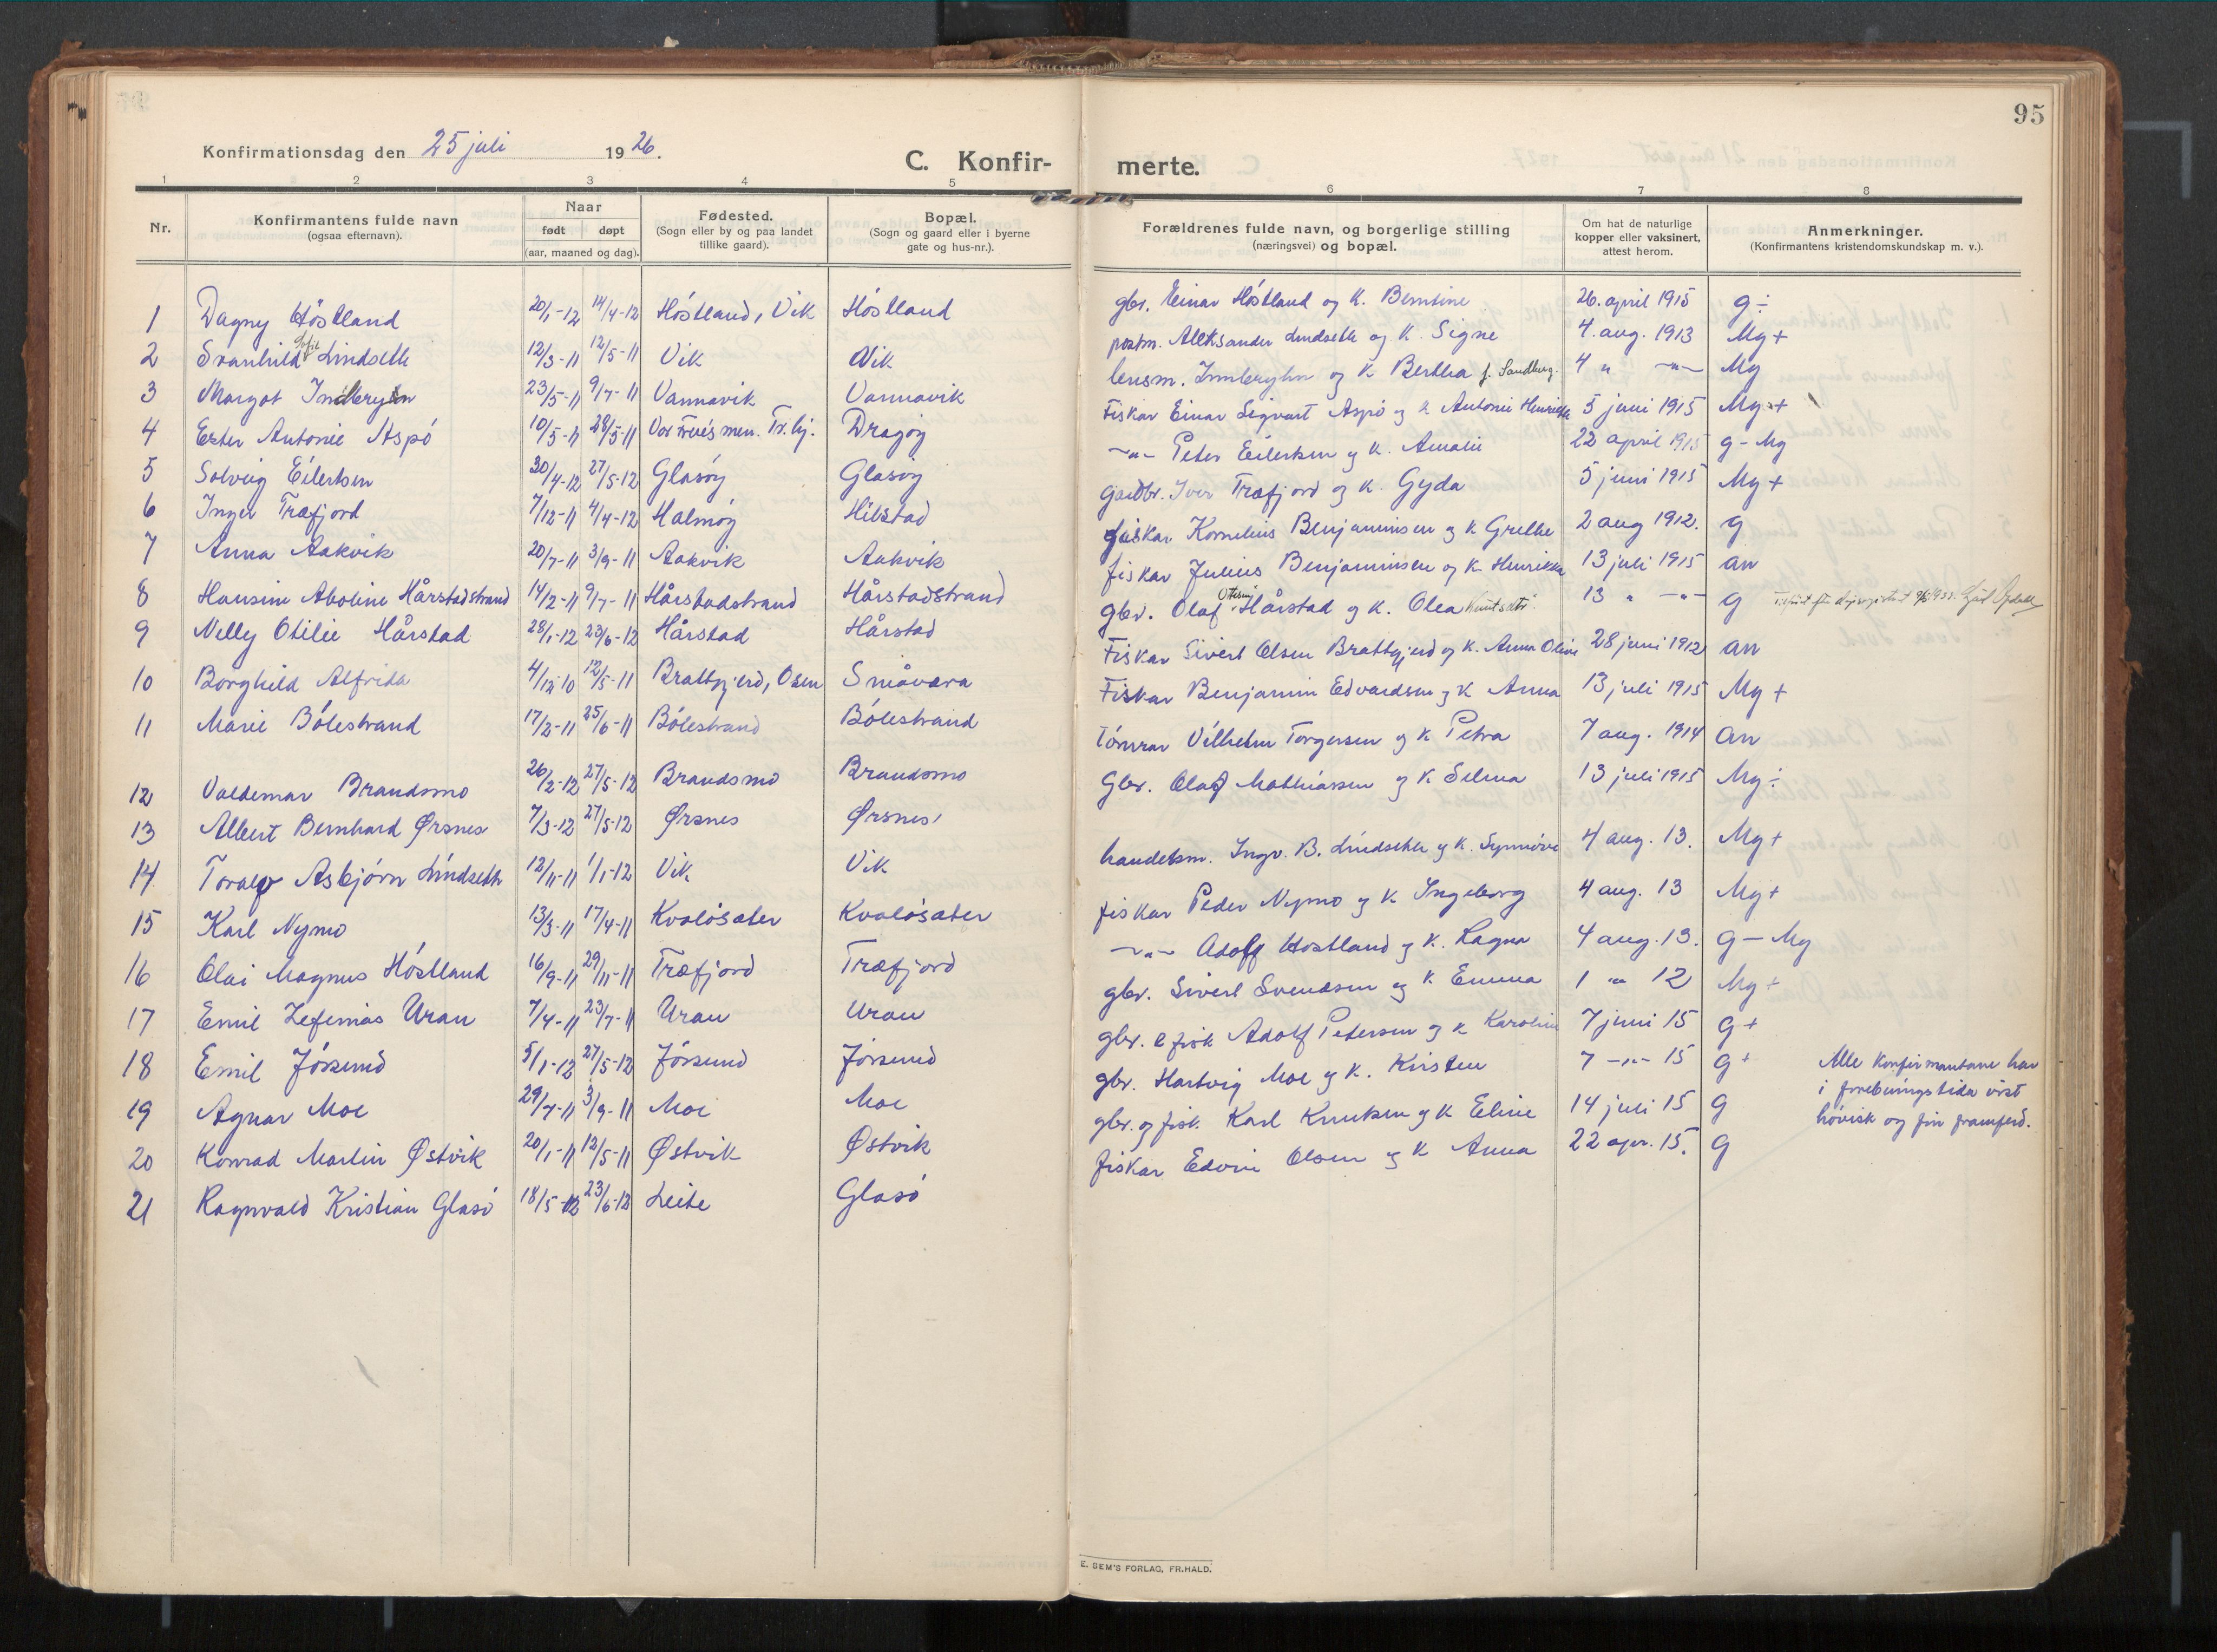 95
Konfirmationsdag den 25 juli 1926.
C. Konfirmerte.
1 2 3 4 5 6 7 8
Nr.
Konfirmantens fulde navn
(ogsaa efternavn).
Naar
født døpt
(aar, maaned og dag).
Fødested.
(Sogn eller by og paa landet
tillike gaard).
Bopæl.
(Sogn og gaard eller i byerne
gate og hus-nr.).
Forældrenes fulde navn, og borgerlige stilling
(næringsvei) og bopæl.
Om hat de naturlige
kopper eller vaksinert,
attest herom.
Anmerkninger.
(Konfirmantens kristendomskundskap m. v.).
1 Dagny Höstland 20/1-12 14/4-12 Höstland, Vik Höstland gbr. Einar Höstland og K. Berntine 26. april 1915 g ÷
2 Svanhild Sofie Lindseth 12/3-11 12/5-11 Vik Vik postm. Aleksander Lindseth og K. Signe 4. aug. 1913 Mg +
3 Margot 23/5-11 9/7-11 Vannavik Vannavik lensm. og K Bertha f. Sandberg. 4 " -"- Mg
4 Ester Antonie Aspö 10/5-11 28/5-11 Vor Frues men. Tr.hj. Dragöy Fiskar Einar Sigvart Aspö og K Antonie Henrikke 5 juni 1915 Mg +
5 Solveig Eilertsen 30/4-12 27/5-12 Glasöy Glasöy -"- Peter Eilertsen og K. Amalie 22 april 1915 g - Mg
6 Inger Træfjord 7/12-11 4/4-12 Halmöy Hilstad gardbr. Iver Træfjord og K. Gyda 5 juni 1915 Mg +
7 Anna Aakvik 20/7-11 3/9-11 Aakvik Aakvik fiskar Kornelius Benjaminsen og K Grethe 2 aug 1912. g
8 Hansine Aboline Hårstadstrand 14/2-11 9/7-11 Hårstadstrand Hårstadstrand fiskar Julius Benjaminsen og K Henrikka 13 juli 1915 an
9 Nelly Otilie Hårstad 28/1-12 23/6-12 Hårstad Hårstad gbr. Olaf Hårstad og K. Olea 13 " -"- g
10 Borghild Alfrida 4/12-10 12/5-11 Brattgjerd, Osen Småværa Fiskar Sivert Olsen Brattgjerd og K. Anna Oline 28 juni 1912 an
11 Marie Bölestrand 17/2-11 25/6-11 Bölestrand Bölestrand Fiskar Benjamin Edvardsen og K Anna 13 juli 1915 Mg +
12 Valdemar Brandsmo 26/2-12 27/5-12 Brandsmo Brandsmo Tömrar Vilhelm Torgersen og K Petra 7 aug. 1914 an
13 Albert Bernhard Ørsnes 7/3-12 27/5-12 Ørsnes Ørsnes Gbr. Olaf Mathiassen og K Selma 13 juli 1915 Mg ÷
14 Toralf Asbjörn Lindseth 12/11-11 1/1-12 Vik Vik handelsm. Ingv. B. Lindseth og K. Synnöve 4 aug. 13. Mg +
15 Karl Nymo 13/3-11 17/4-11 Kvalösæter Kvalösæter fiskar Peder Nymo og K Ingeborg 4 aug. 13 Mg +
16 Olai Magnus Höstland 16/9-11 29/11-11 Træfjord Træfjord -"- Adolf Hostland og K. Ragna 4 aug. 13. g - Mg
17 Emil Zefenias Uran 7/4-11 23/7-11 Uran Uran gbr. Sivert Svendsen og K Emma 1 " 12 Mg +
18 Emil Jössund 5/1-12 27/5-12 Jössund Jössund gbr. & fisk Adolf Petersen og K Karoline 7 juni 15 g +
19 Agnar Moe 29/7-11 3/9-11 Moe Moe gbr. Hartvig Moe og K. Kristen 7 -"- 15 g +
20 Konrad Martin Østvik 20/1-11 12/5-11 Østvik Østvik gbr. og fisk. Karl Knutsen og K Eline 14 juli 15 g
21 Ragnvald Kristian Glasö 18/5-12 23/6-12 Leite Glasö fiskar Edvin Olsen og K Anna 22 apr. 15. g
Alle konfirmantane har
i fyrebuingstida vist
hövisk og fin framferd.
E. SEM'S FORLAG, FR.HALD.